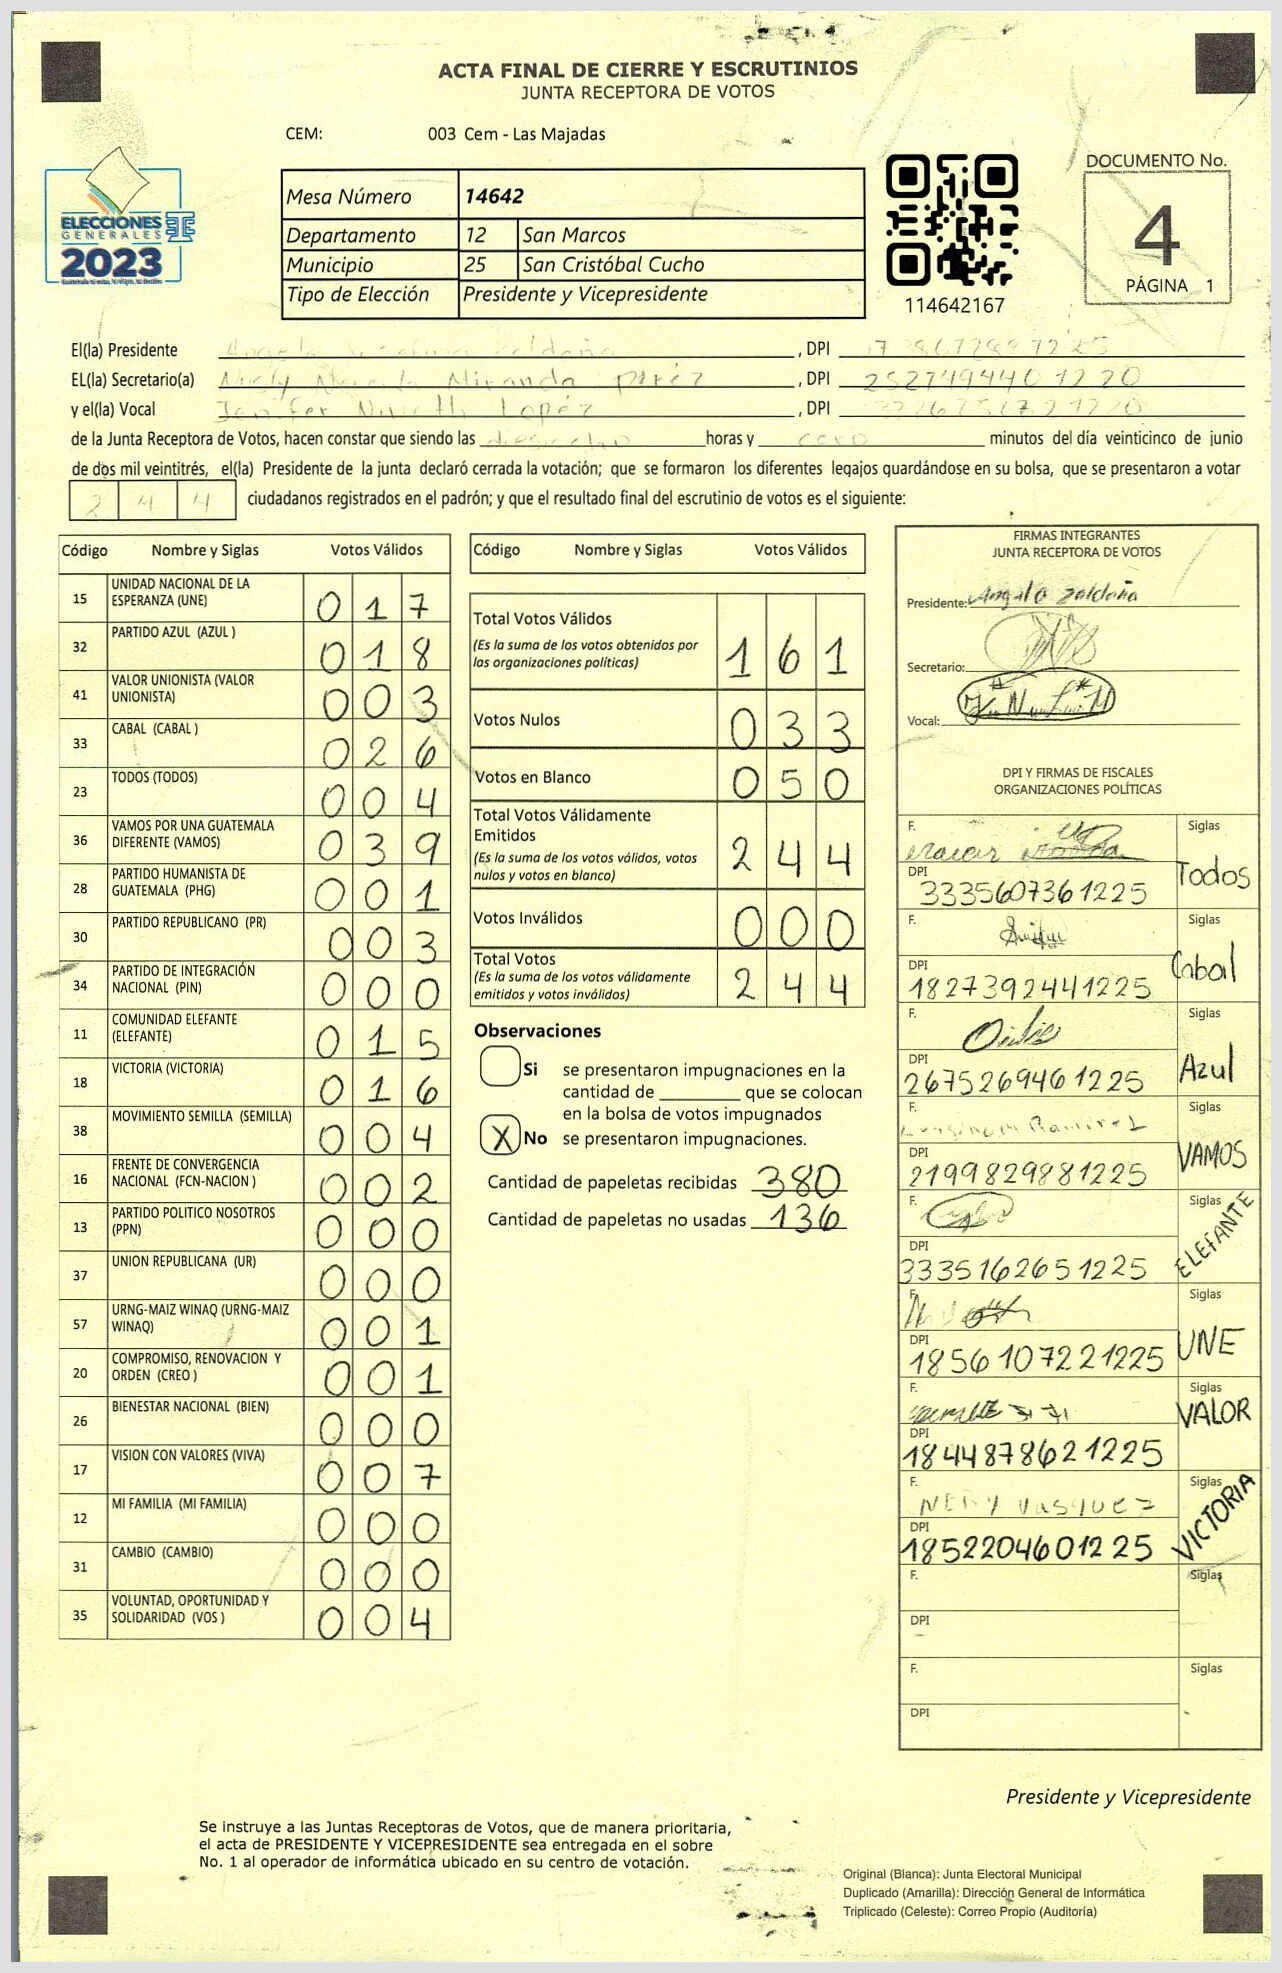 ACTA FINAL DE CIERRE Y ESCRUTINIOS
JUNTA RECEPTORA DE VOTOS
CEM: 003 Cem - Las Majadas
ELECCIONES
GENERALES
2023
Mesa Número 14642
Departamento 12 San Marcos
Municipio 25 San Cristóbal Cucho
Tipo de Elección Presidente y Vicepresidente
114642167
DOCUMENTO No.
4
PÁGINA 1
El(la) Presidente , DPI
EL(la) Secretario(a) Miranda , DPI 2527494401220
y el(la) Vocal Jenifer López , DPI
de la Junta Receptora de Votos, hacen constar que siendo las horas y cero minutos del día veinticinco de junio
de dos mil veintitrés, el(la) Presidente de la junta declaró cerrada la votación; que se formaron los diferentes legajos guardándose en su bolsa, que se presentaron a votar
244 ciudadanos registrados en el padrón; y que el resultado final del escrutinio de votos es el siguiente:
Código Nombre y Siglas Votos Válidos
15 UNIDAD NACIONAL DE LA ESPERANZA (UNE) 017
32 PARTIDO AZUL (AZUL ) 018
41 VALOR UNIONISTA (VALOR UNIONISTA) 003
33 CABAL (CABAL ) 026
23 TODOS (TODOS) 004
36 VAMOS POR UNA GUATEMALA DIFERENTE (VAMOS) 039
28 PARTIDO HUMANISTA DE GUATEMALA (PHG) 001
30 PARTIDO REPUBLICANO (PR) 003
34 PARTIDO DE INTEGRACIÓN NACIONAL (PIN) 000
11 COMUNIDAD ELEFANTE (ELEFANTE) 015
18 VICTORIA (VICTORIA) 016
38 MOVIMIENTO SEMILLA (SEMILLA) 004
16 FRENTE DE CONVERGENCIA NACIONAL (FCN-NACION ) 002
13 PARTIDO POLITICO NOSOTROS (PPN) 000
37 UNION REPUBLICANA (UR) 000
57 URNG-MAIZ WINAQ (URNG-MAIZ WINAQ) 001
20 COMPROMISO, RENOVACION Y ORDEN (CREO ) 001
26 BIENESTAR NACIONAL (BIEN) 000
17 VISION CON VALORES (VIVA) 007
12 MI FAMILIA (MI FAMILIA) 000
31 CAMBIO (CAMBIO) 000
35 VOLUNTAD, OPORTUNIDAD Y SOLIDARIDAD (VOS ) 004
Código Nombre y Siglas Votos Válidos
Total Votos Válidos 161
(Es la suma de los votos obtenidos por
las organizaciones políticas)
Votos Nulos 033
Votos en Blanco 050
Total Votos Válidamente
Emitidos 244
(Es la suma de los votos válidos, votos
nulos y votos en blanco)
Votos Inválidos 000
Total Votos 244
(Es la suma de los votos válidamente
emitidos y votos inválidos)
Observaciones
Si se presentaron impugnaciones en la
cantidad de ________ que se colocan
en la bolsa de votos impugnados
X No se presentaron impugnaciones.
Cantidad de papeletas recibidas 380
Cantidad de papeletas no usadas 136
FIRMAS INTEGRANTES
JUNTA RECEPTORA DE VOTOS
Presidente: Angela Saldaña
Secretario:
Vocal:
DPI Y FIRMAS DE FISCALES
ORGANIZACIONES POLÍTICAS
F. Siglas
DPI 3335607361225 Todos
F. Siglas
DPI 1827392441225 Cabal
F. Siglas
DPI 2675269461225 Azul
F. Ramirez Siglas
DPI 2199829881225 VAMOS
F. Siglas
DPI 3335162651225 ELEFANTE
F. Siglas
DPI 1856107221225 UNE
F. Siglas
DPI 1844878621225 VALOR
F. NERY Vasquez Siglas
DPI 1852204601225 VICTORIA
F. Siglas
DPI
F. Siglas
DPI
Presidente y Vicepresidente
Se instruye a las Juntas Receptoras de Votos, que de manera prioritaria,
el acta de PRESIDENTE Y VICEPRESIDENTE sea entregada en el sobre
No. 1 al operador de informática ubicado en su centro de votación.
Original (Blanca): Junta Electoral Municipal
Duplicado (Amarilla): Dirección General de Informática
Triplicado (Celeste): Correo Propio (Auditoría)